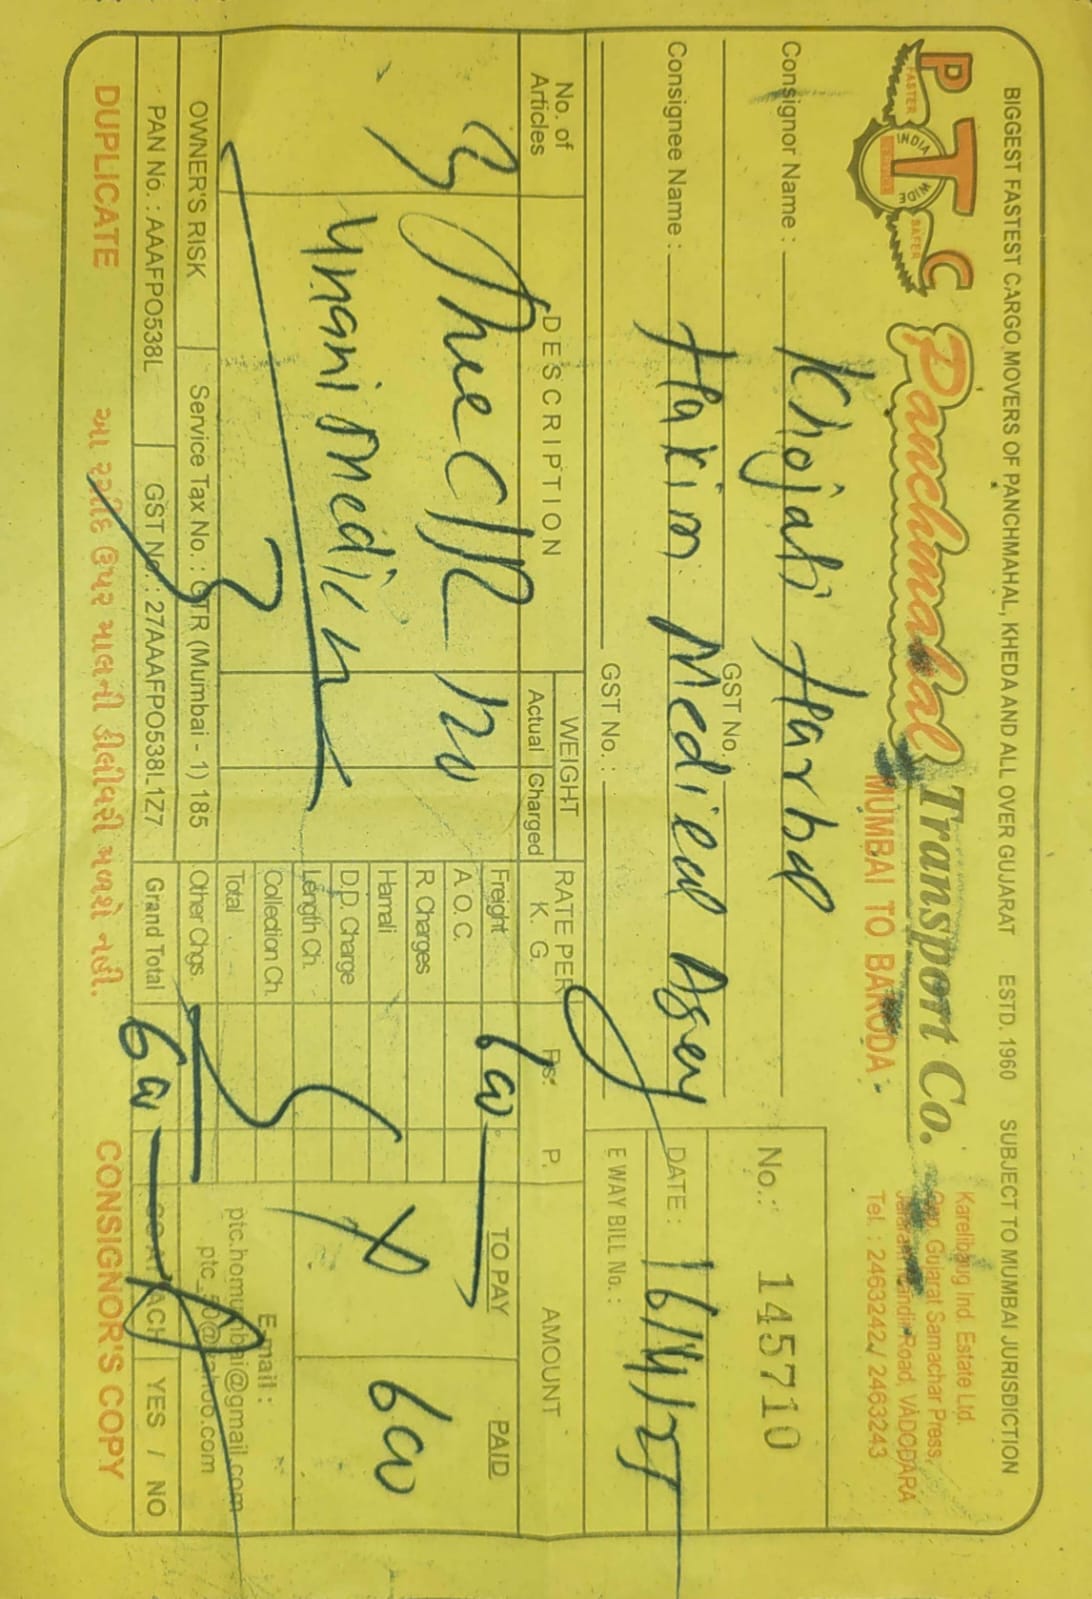 BIGGEST FASTEST CARGO MOVERS OF PANCHMAHAL, KHEDA AND ALL OVER GUJARAT ESTD. 1960 SUBJECT TO MUMBAI JURISDICTION
PTC
FASTER INDIA WIDE SAFER
Panchmahal Transport Co.
MUMBAI TO BARODA
Karelibaug Ind. Estate Ltd.
Opp. Gujarat Samachar Press,
Road, VADODARA
Tel. : 2463242 / 2463243
Consignor Name : Khojati Harbal
GST No.
No.: 145710
Consignee Name : Hakim Medical
DATE : 16/11/25
GST No. :
E WAY BILL No. :
No. of Articles DESCRIPTION WEIGHT Actual Charged RATE PER K. G. Rs. P. AMOUNT
TO PAY PAID
3
Freight 600
A.O.C.
R. Charges
Unani medicin
Hamali
D.D. Charge
X 600
Length Ch.
Collection Ch.
Total
E-mail :
OWNER'S RISK Service Tax No. : GTR (Mumbai - 1) 185 Other Chgs.
PAN No. : AAAFPO538L GST No.: 27AAAFPO538L1Z7 Grand Total 600 YES / NO
DUPLICATE આ રસીદ ઉપર માલની ડીલીવરી મળશે નહી. CONSIGNOR'S COPY